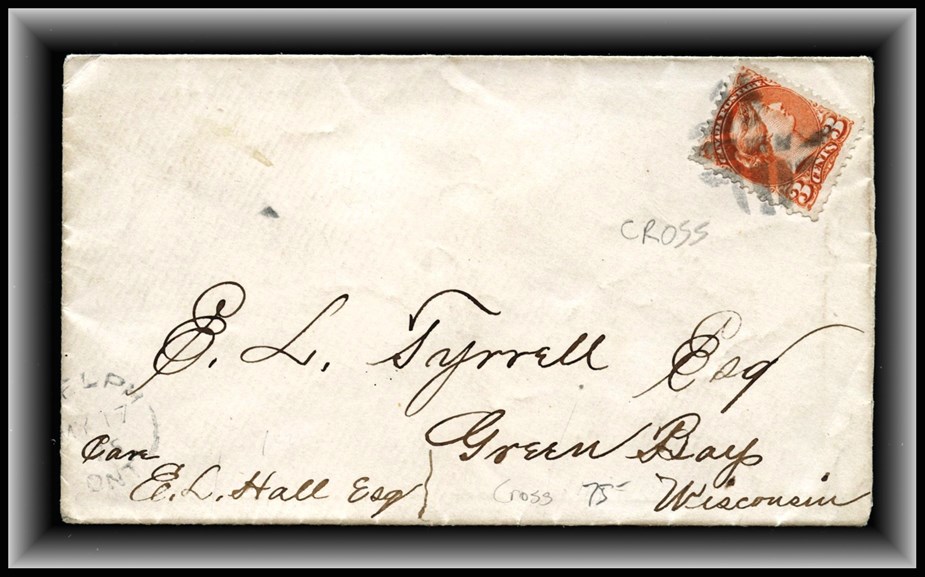 3 CENTS 3
CROSS
E. L. Tyrrell Esq
Green Bay
Wisconsin
Care
E. L. Hall Esq
Cross 75
ELPH
17
ONT